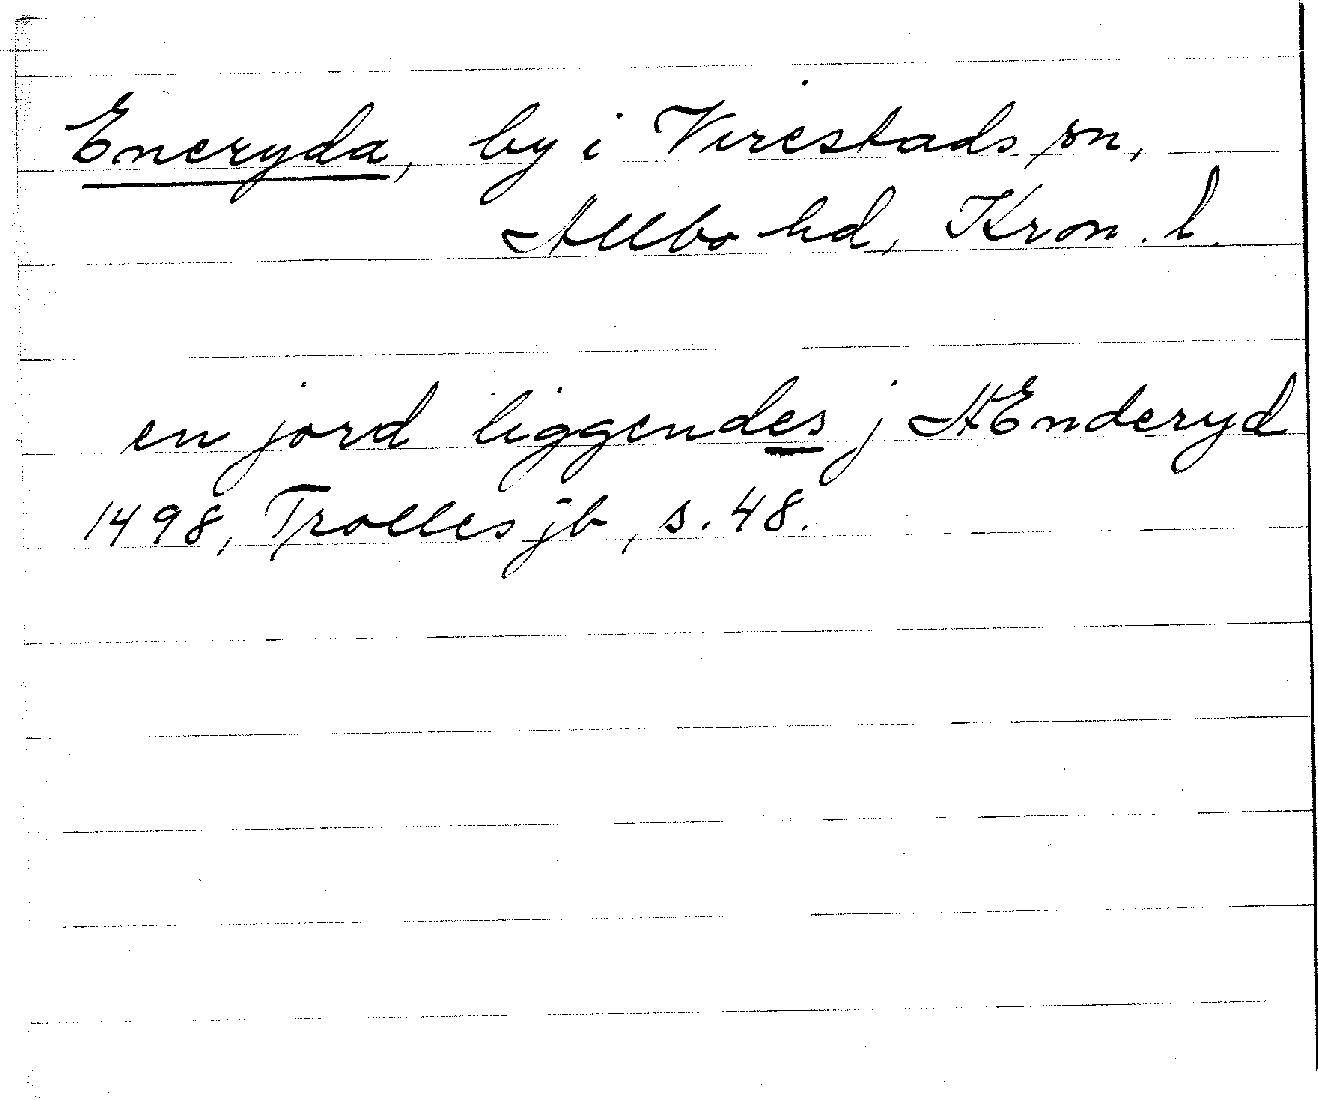 Eneryda, by i Virestads sn,
Allbo hd, Kron. l.
en jord liggendes j Æenderyd
1498, Trolles jb, s. 48.